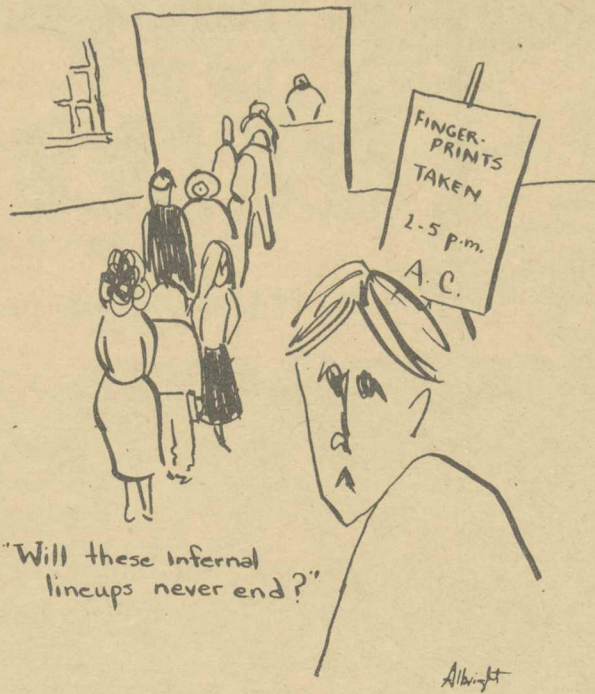 FINGER-
PRINTS
TAKEN
2-5 p.m.
A.C.
"Will these infernal
lineups never end?"
Albright